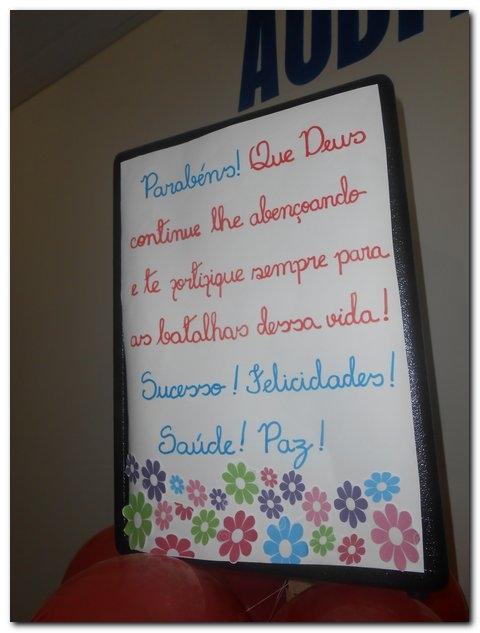 AUDIT
Parabéns! Que Deus
continue lhe abençoando
e te fortifique sempre para
as batalhas dessa vida!
Sucesso! Felicidades!
Saúde! Paz!